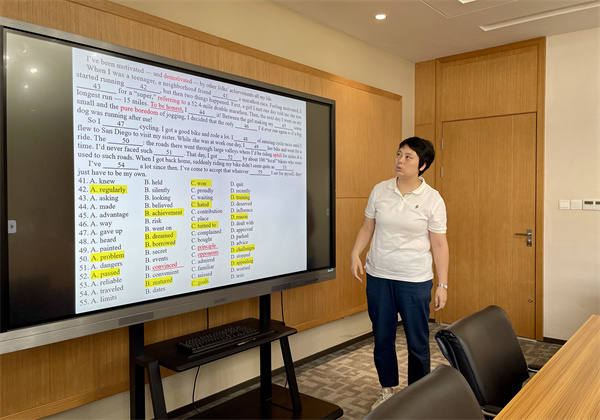 I've been motivated — and demotivated — by other folks' achievements all my life.
When I was a teenager, a neighborhood friend 41 a marathon race. Feeling motivated, I
started running 42, but then two things happened. First, a girl I met one day told me she was
43 for a "super," referring to a 52.4-mile double marathon. Then, the next day I went on my
longest run — 15 miles. To be honest, I 44 it! Between the girl making my
small and the pure boredom of jogging, I decided that the only 46 I'd ever run again is if a big
dog was running after me!
So I 47 cycling. I got a good bike and rode a lot. I 48 of entering cycle races until I
flew to San Diego to visit my sister. While she was at work one day, I 49 her bike and went for a
ride. The 50: the roads there went through large valleys where I'd be riding uphill for miles at a
time. I'd never faced such 51. That day, I got 52 by about 100 "local" bikers who were
used to such roads. When I got back home, suddenly riding my bike didn't seem quite as 53
I've 54 a lot since then. I've come to accept that whatever 55 I set for myself, they
just have to be my own.
41. A. knew B. held C. won D. quit
42. A. regularly B. silently C. proudly D. recently
43. A. asking B. looking C. waiting D. training
44. A. made B. believed C. hated D. deserved
45. A. advantage B. achievement C. contribution D. influence
46. A. way B. risk C. place D. reason
47. A. gave up B. went on C. turned to D. dealt with
48. A. heard B. dreamed C. complained D. approved
49. A. painted B. borrowed C. bought D. parked
50. A. problem B. secret C. principle D. advice
51. A. dangers B. events C. opponents D. challenges
52. A. passed B. convinced C. admired D. stopped
53. A. reliable B. convenient C. familiar D. appealing
54. A. traveled B. matured C. raised D. worried
55. A. limits B. dates C. goals D. tests